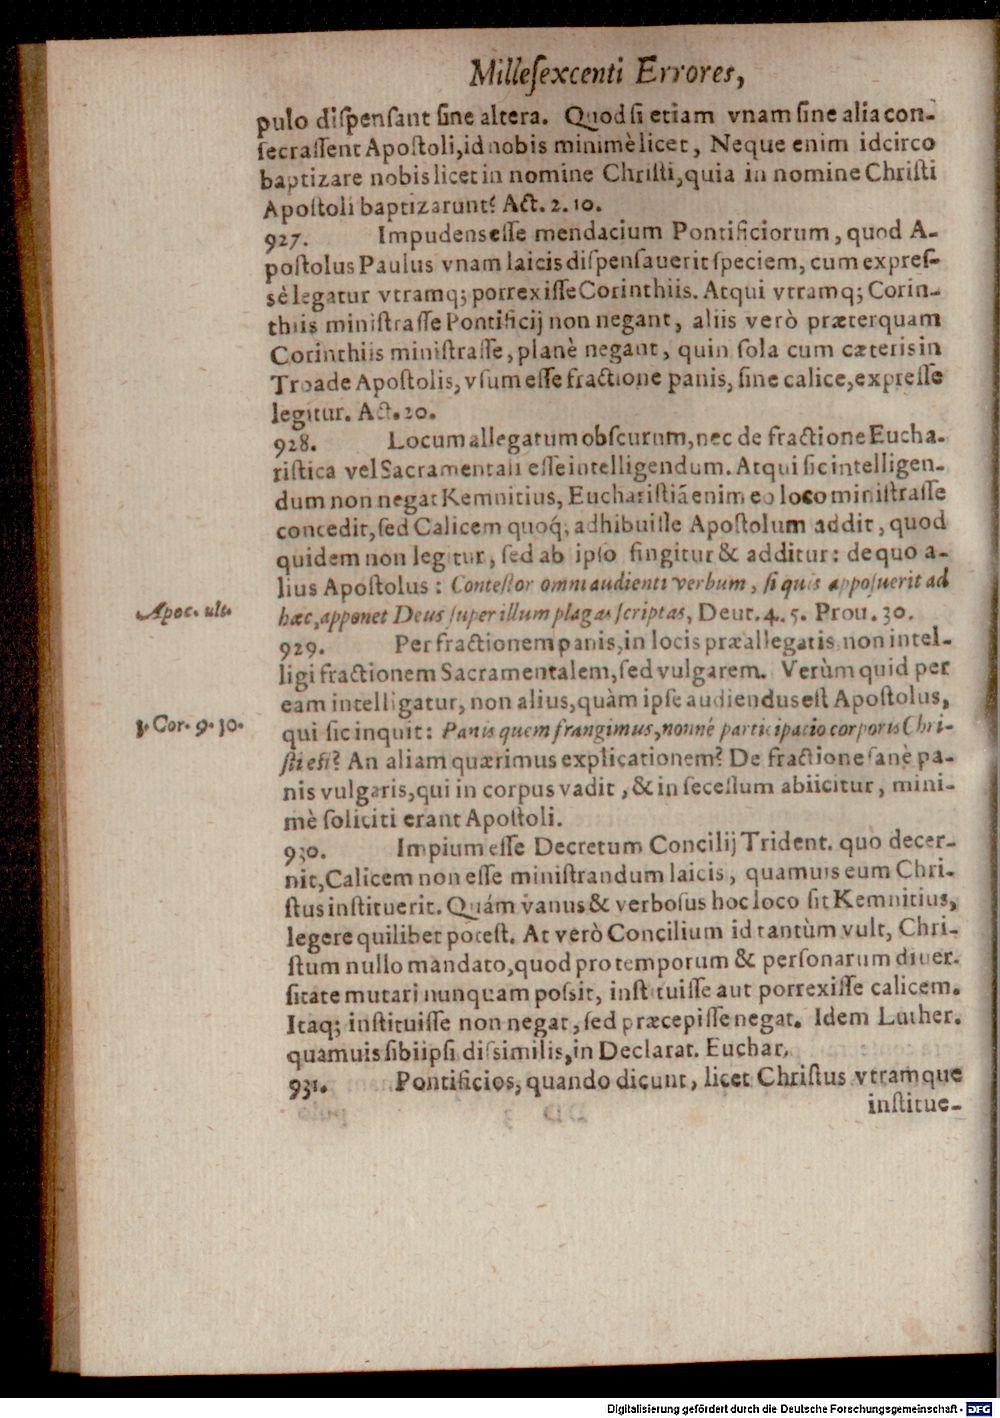 Milleſexcenti Errores,
pulo diſpenſant ſine altera. Quod ſi etiam vnam ſine alia con-
ſecraſſent Apoſtoli, id nobis minimè licet, Neque enim idcirco
baptizare nobis licet in nomine Chriſti, quia in nomine Chriſti
Apoſtoli baptizarunt? Act. 2. 10.
927. Impudens eſſe mendacium Pontificiorum, quod A-
poſtolus Paulus vnam laicis diſpenſauerit ſpeciem, cum expreſ-
sè legatur vtramq; porrexiſſe Corinthiis. Atqui vtramq; Corin-
thiis miniſtraſſe Pontificij non negant, aliis verò præterquam
Corinthiis miniſtraſſe, planè negant, quin ſola cum cæteris in
Troade Apoſtolis, vſum eſſe fractione panis, ſine calice, expreſſe
legitur. Act. 20.
928. Locum allegatum obſcurum, nec de fractione Eucha-
riſtica vel Sacramentali eſſe intelligendum. Atqui ſic intelligen-
dum non negat Kemnitius, Euchariſtiã enim eo loco miniſtraſſe
concedit, ſed Calicem quoq; adhibuiſſe Apoſtolum addit, quod
quidem non legitur, ſed ab ipſo fingitur & additur: de quo a-
lius Apoſtolus: Conteſtor omni audienti verbum, ſi quis appoſuerit ad
Apoc. ult.
hæc, apponet Deus ſuper illum plagas ſcriptas, Deut. 4. 5. Prou. 30.
929. Per fractionem panis, in locis præallegatis non intel-
ligi fractionem Sacramentalem, ſed vulgarem. Verùm quid per
eam intelligatur, non alius, quàm ipſe audiendus eſt Apoſtolus,
1. Cor. 9. 10.
qui ſic inquit: Panis quem frangimus, nonné participatio corporis Chri-
ſti eſt? An aliam quærimus explicationem? De fractione ſanè pa-
nis vulgaris, qui in corpus vadit, & in ſeceſſum abiicitur, mini-
mè ſoliciti erant Apoſtoli.
930. Impium eſſe Decretum Concilij Trident. quo decer-
nit, Calicem non eſſe miniſtrandum laicis, quamuis eum Chri-
ſtus inſtituerit. Quám vanus & verboſus hoc loco ſit Kemnitius,
legere quilibet poteſt. At verò Concilium id tantùm vult, Chri-
ſtum nullo mandato, quod pro temporum & perſonarum diuer-
ſitate mutari nunquam poſsit, inſtituiſſe aut porrexiſſe calicem.
Itaq; inſtituiſſe non negat, ſed præcepiſſe negat. Idem Luther.
quamuis ſibi ipſi diſsimilis, in Declarat. Euchar.
931. Pontificios, quando dicunt, licet Chriſtus vtramque
inſtitue-
Digitalisierung gefördert durch die Deutsche Forschungsgemeinschaft - DFG